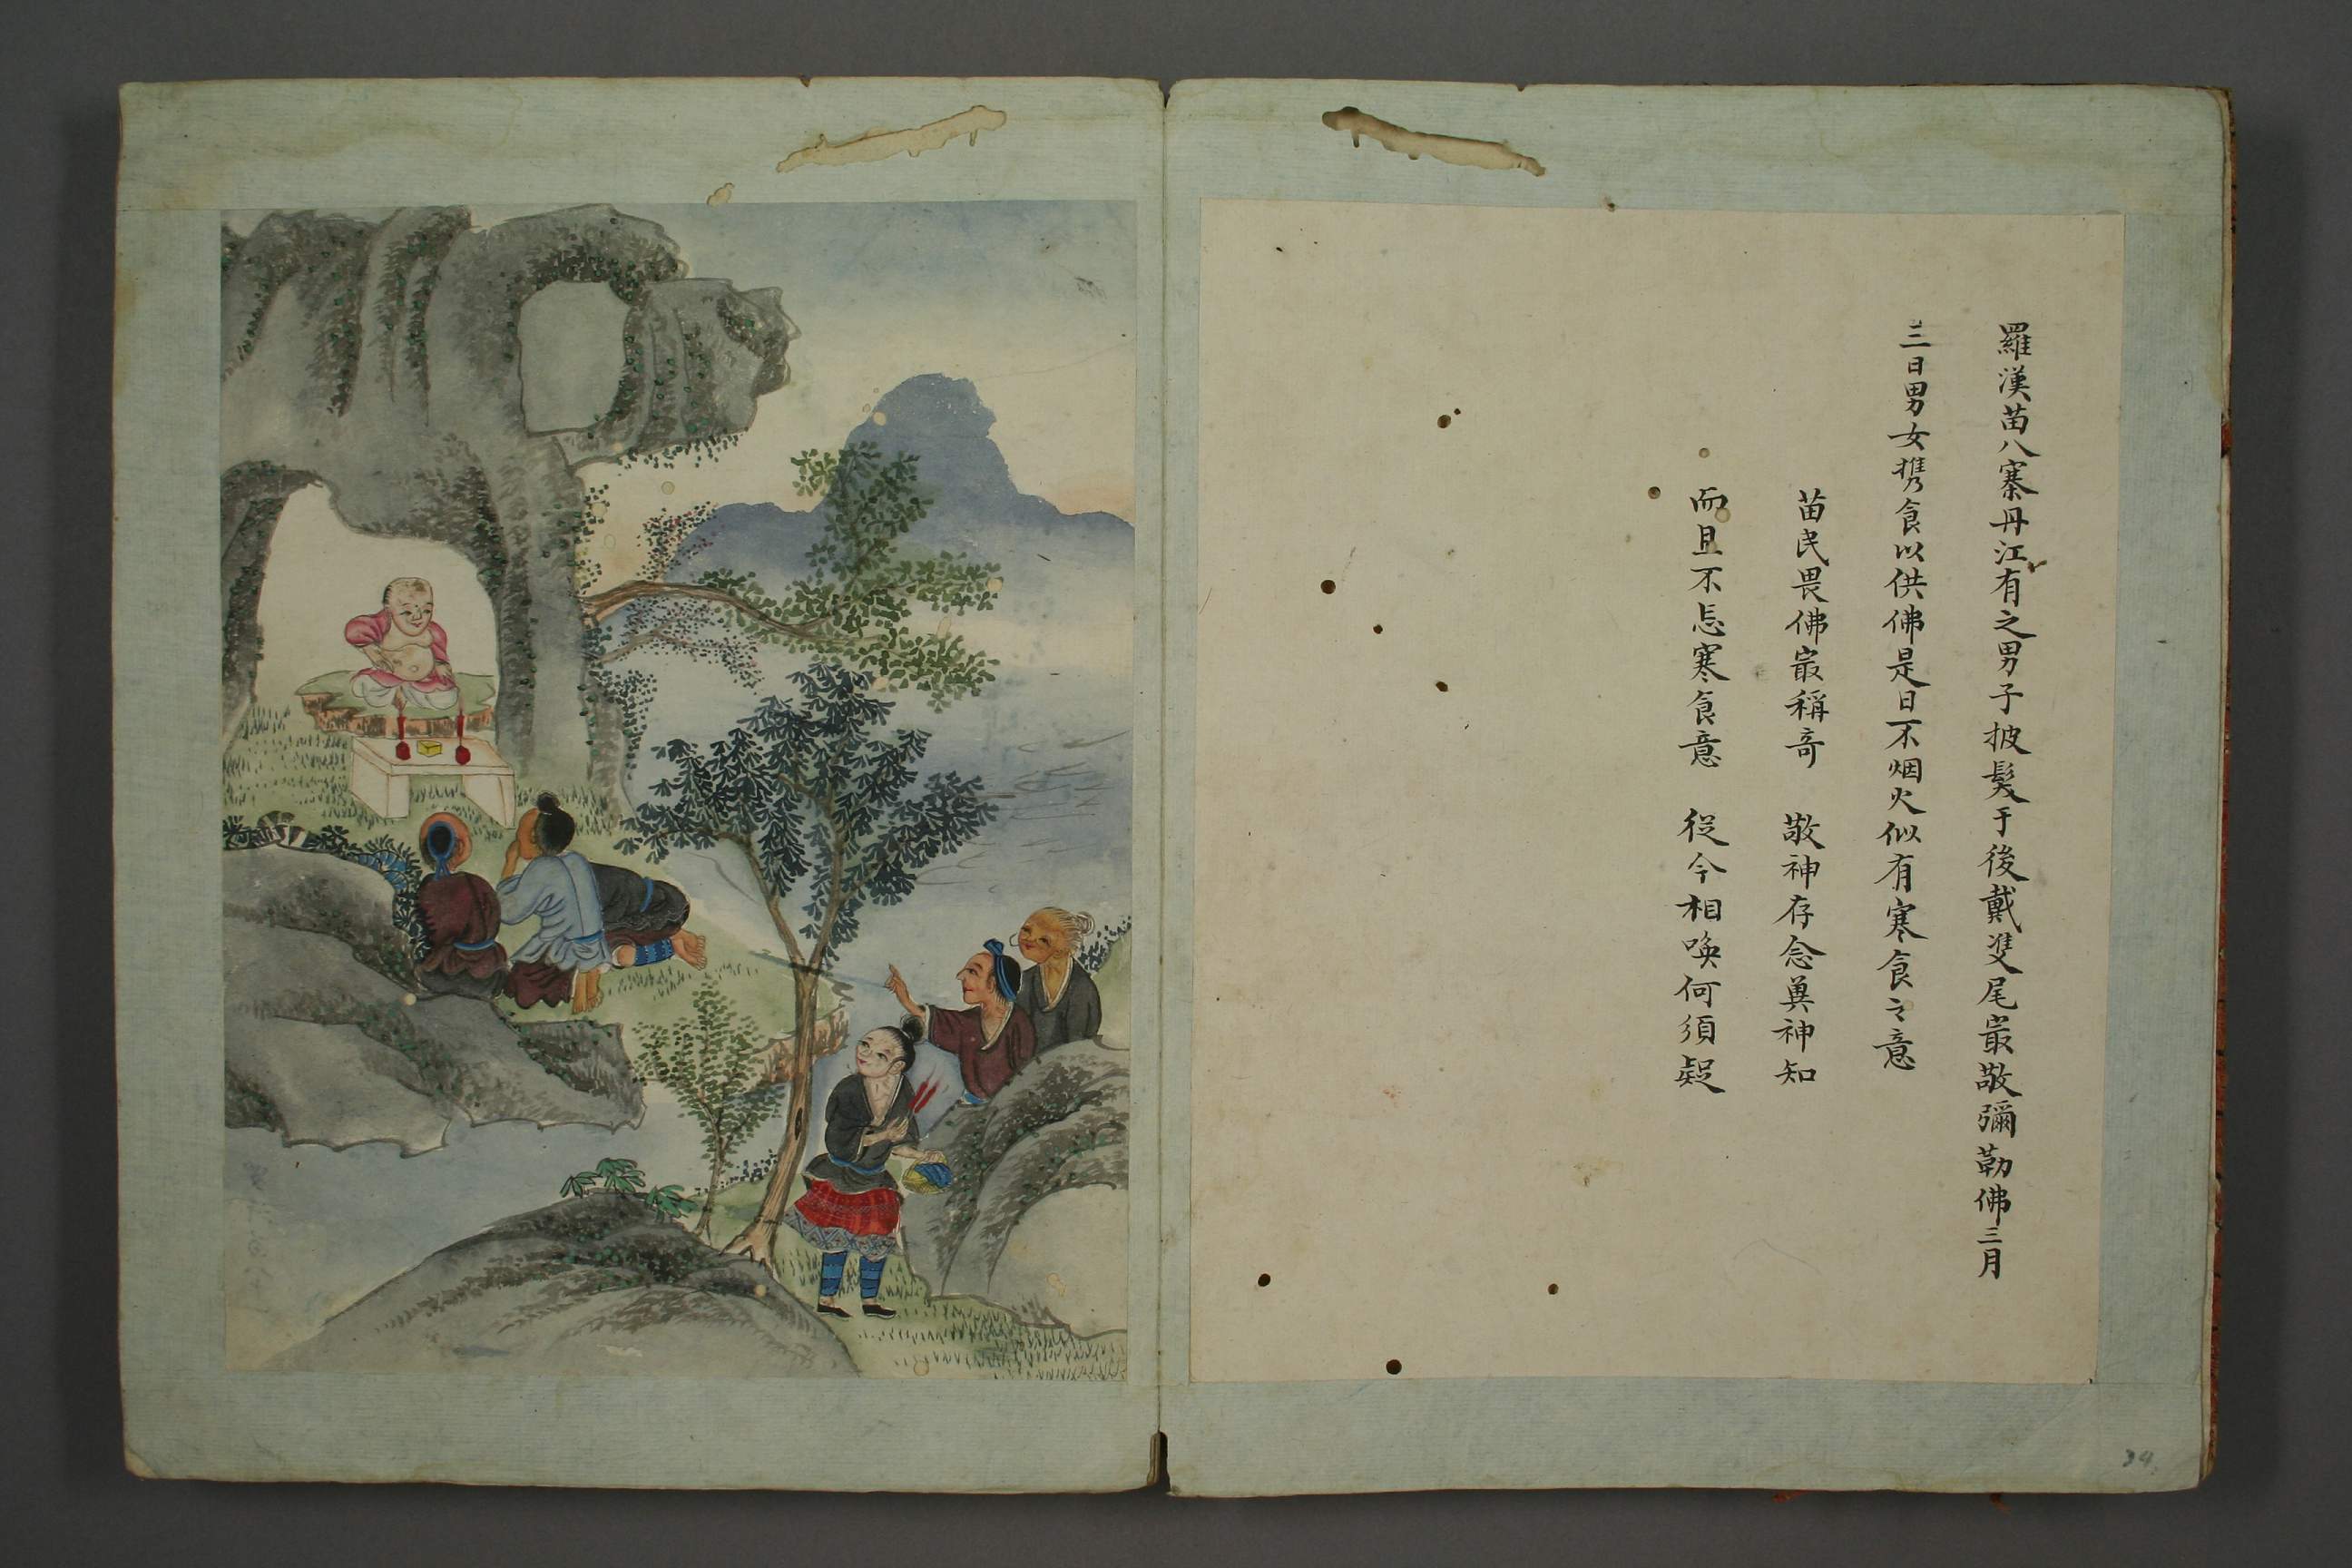 羅漢苗八寨丹江有之男子披髮于後戴雙尾㝡敬彌勒佛三月
三日男女携食以供佛是日不烟火似有寒食之意
苗民畏佛㝡稱奇　敬神存念奠神知
而且不忘寒食意　從今相喚何須疑
34